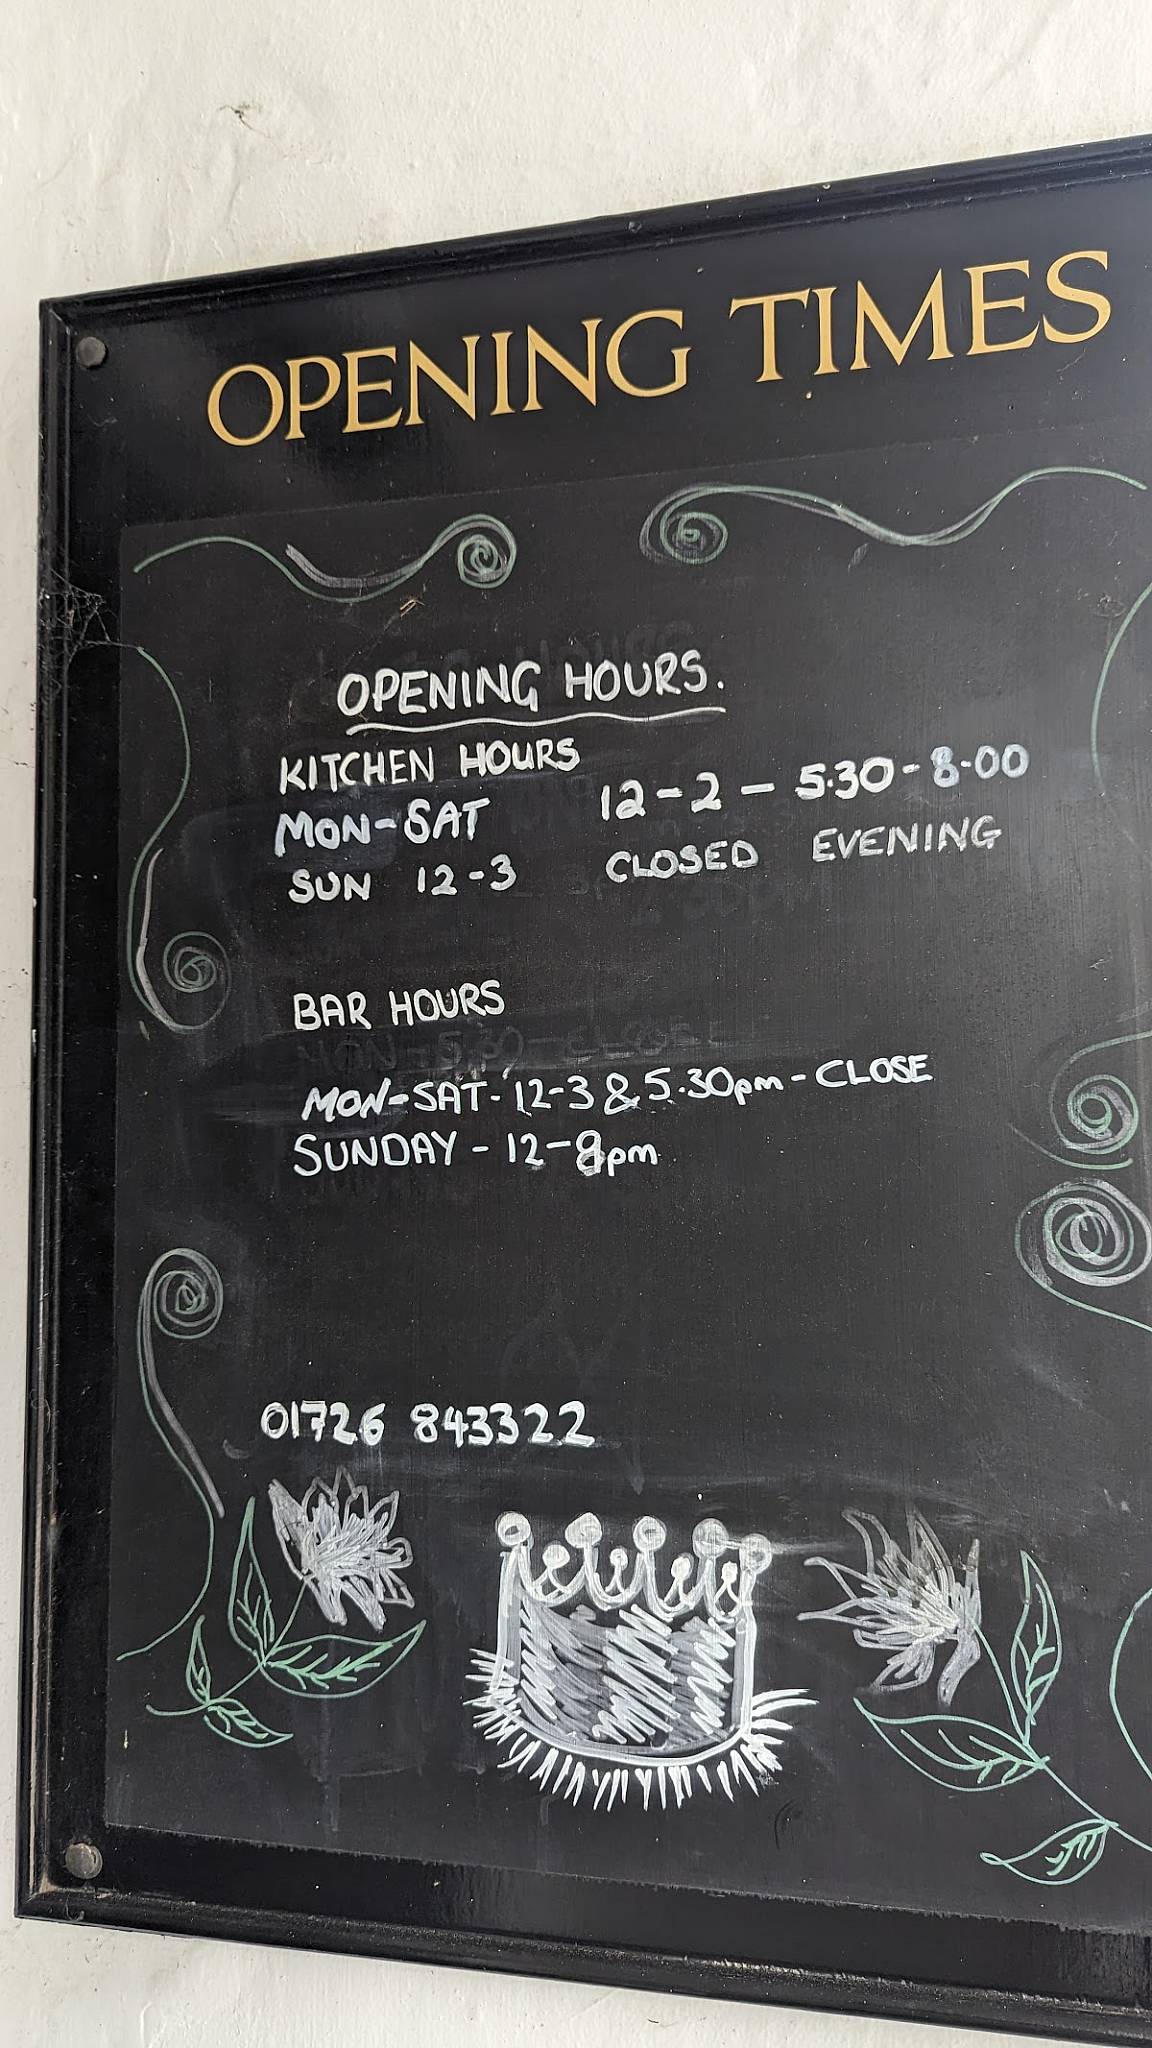 OPENING TIMES
OPENING HOURS.
KITCHEN HOURS
MON-SAT 12-2 - 5.30-8.00
SUN 12-3 CLOSED EVENING
BAR HOURS
MON-SAT-12-3 & 5.30pm-CLOSE
SUNDAY-12-8pm
01726 843322